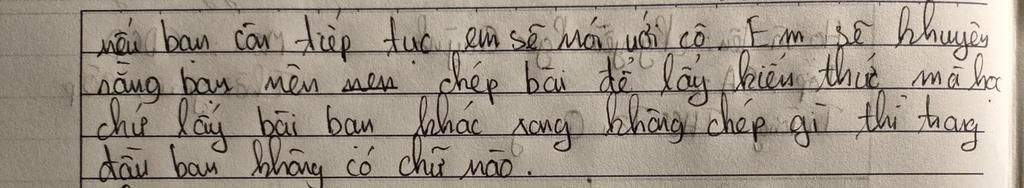 nếu bạn còn tiếp tục em sẽ nói với cô. Em sẽ khuyên
năng bạn nên nen chép bài để lấy kiến thức mà họ
chứ lấy bài bạn khác xong không chép gì thì trong
đầu bạn không có chữ nào.